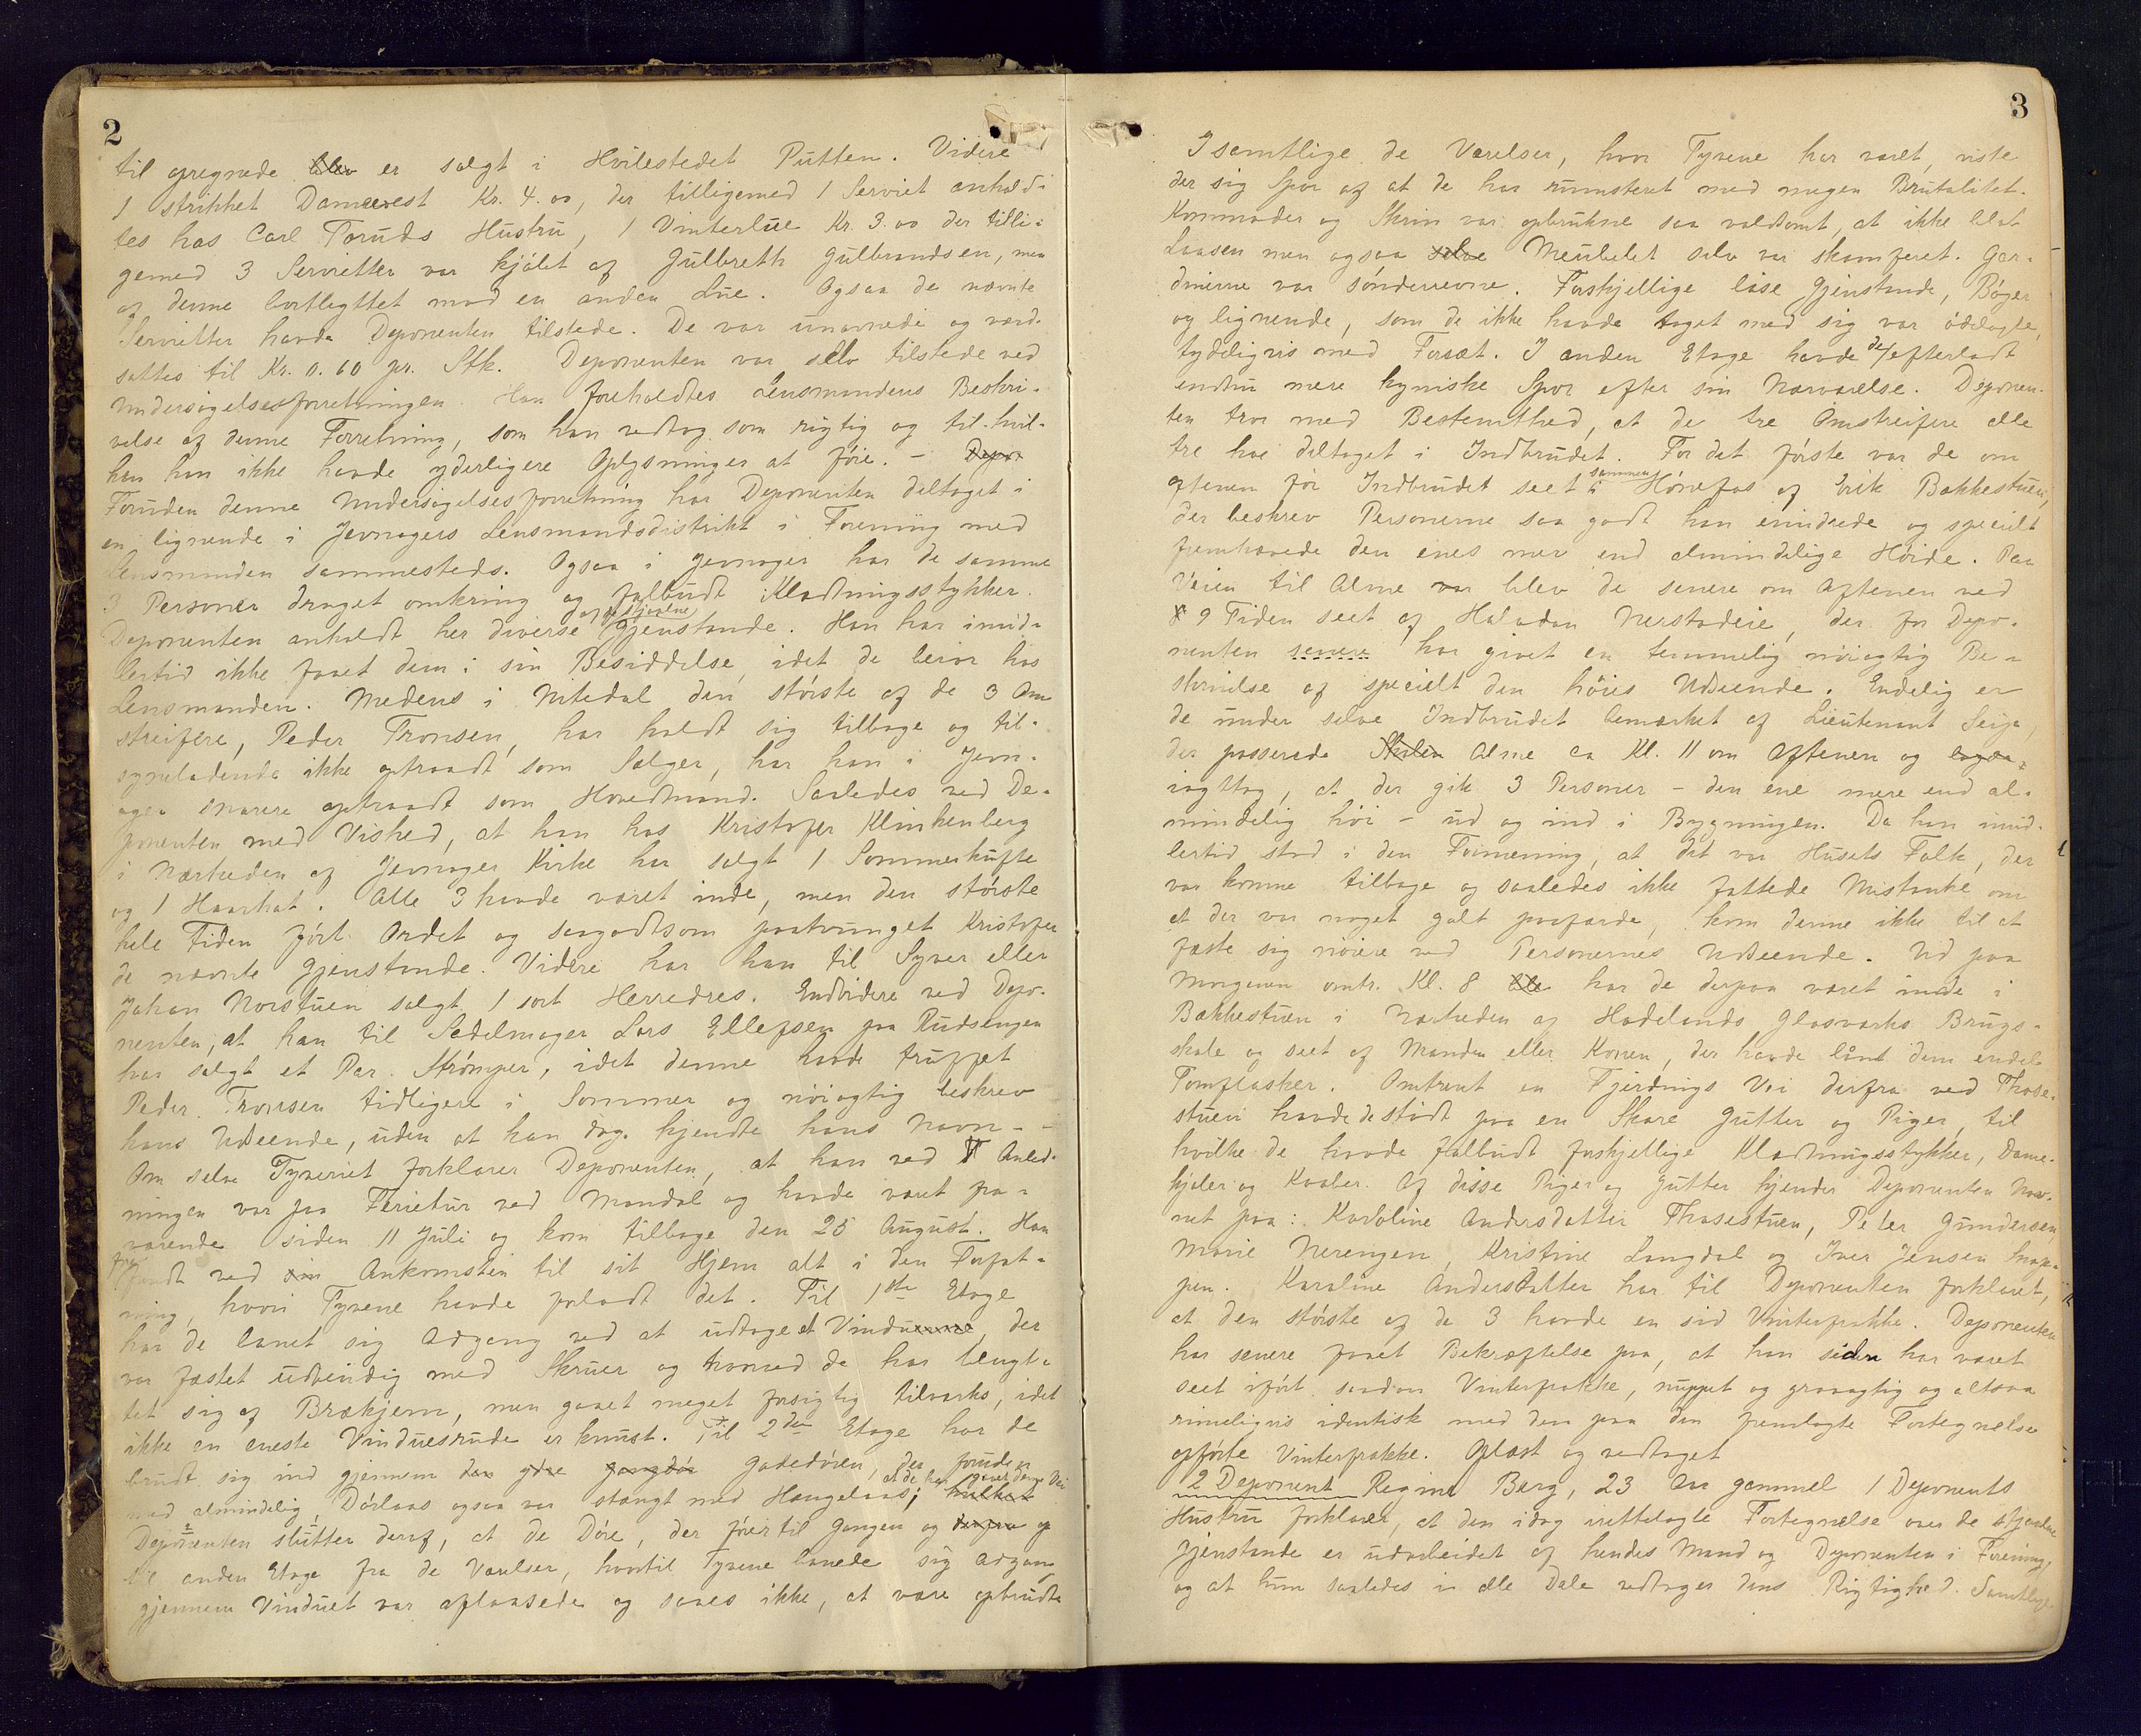 2
til opregnede blev er solgt i Hvilestedet Putten. Videre
1 strikket Damevest Kr. 4.00, der tilligemed 1 Serviet anhold-
tes hos Carl Toruds Hustru, 1 Vinterlue Kr. 3.00 der tilli-
gemed 3 Servietter var kjøbt af Gulbrett Gulbrandsen, men
af denne bortbyttet mod en anden Lue. Ogsaa de nævnte
Servietter havde Deponenten tilstede. De var unavnede og værd-
sattes til Kr. 0.60 pr. Stk. Deponenten var selv tilstede ved
Undersøgelsesforretningen. Han foreholdtes Lensmandens Beskri-
velse af denne Forretning, som han vedtog som rigtig og til hvil-
ken han ikke havde yderligere Oplysninger at føie. – Depo-
Foruden denne Undersøgelsesforretning har Deponenten deltaget i
en lignende i Jevnagers Lensmandsdistrikt i Forening med
Lensmanden sammesteds. Ogsaa i Jevnager har de samme
3 Personer draget omkring og falbudt Klædningsstykker.
Deponenten anholdt her diverse af de stjaalne Gjenstande. Han har imid-
lertid ikke faaet dem i sin Besiddelse, idet de beror hos
Lensmanden. Medens i Nitedal den største af de 3 Om-
streifere, Peder Tronsen, har holdt sig tilbage og til-
syneladende ikke optraadt som Sælger, har han i Jevn-
ager snarere optraadt som Hovedmand. Saaledes ved De-
ponenten med Vished, at han hos Kristofer Klinkenberg
i Nærheden af Jevnager Kirke har solgt 1 Sommerkufte
og 1 Haarhat. Alle 3 havde været inde, men den største
hele Tiden ført Ordet og saagodtsom paatvunget Kristofer
de nævnte Gjenstande. Videre har han til Syver eller
Johan Norstuen solgt 1 sort Herredres. Endvidere ved Depo-
nenten, at han til Sadelmager Lars Ellefsen paa Rudsengen
har solgt et Par Strømper, idet denne havde truffet
Peder Tronsen tidligere i Sommer og nøiagtig beskrev
hans Udseende, uden at han dog kjendte hans Navn. –
Om selve Tyveriet forklarer Deponenten, at han ved Anled-
ningen var paa Ferietur ved Mandal og havde været fra-
værende siden 11 Juli og kom tilbage den 25 August. Han
fandt ved sin Ankomsten til sit Hjem alt i den Forfat-
ning, hvori Tyvene havde forladt det. Til 1ste Etage
har de banet sig Adgang ved at udtage et Vinduerne, der
var fæstet udvendig med Skruer og hvorved de har benyt-
tet sig af Brækjern, men gaaet meget forsigtig tilværks, idet
ikke en eneste Vinduesrude er knust. Til 2den Etage har de
brudt sig ind gjennem den ydre Gangdør Gadedøren, der foruden
med almindelig Dørlaas ogsaa var stængt med Hængelaas; hvilket at de har gaaet denne Vei
Deponenten slutter deraf, at de Døre, der fører til Gangen og derfra op
til anden Etage fra de Værelser, hvortil Tyvene banede sig Adgang
gjennem Vinduet var aflaasede og saaes ikke, at være opbrudte
3
I samtlige de Værelser, hvor Tyvene har været, viste
der sig Spor af at de har rumsteret med megen Brutalitet.
Kommoder og Skrin var opbrukne saa voldsomt, at ikke blot
Laasen men ogsaa selve Meubelet selv var skamferet. Gar-
dinerne var sønderrevne. Forskjellige løse Gjenstande, Bøger
og lignende, som de ikke havde taget med sig var ødelagte,
tydeligvis med Forsæt. I anden Etage havde de efterladt
endnu mere kyniske Spor efter sin Nærværelse. Deponen-
ten tror med Bestemthed, at de tre Omstreifere alle
tre har deltaget i Indbrudet. For det første var de om
aftenen før Indbrudet seet sammen i Hønefos af Erik Bakkestuen,
der beskrev Personerne saa godt han erindrede og specielt
fremhævede den enes mer end almindelige Høide. Paa
Veien til Alme var blev de senere om Aftenen ved
9 Tiden seet af Halvdan Nerstadeie, der for Depo-
nenten senere har givet en temmelig nøiagtig Be-
skrivelse af specielt den høies Udseende. Endelig er
de under selve Indbrudet bemærket af Lieutenant Seip,
der passerede Skolen Alme ca Kl. 11 om Aftenen og
iagttog, at der gik 3 Personer – den ene mere end al-
mindelig høi – ud og ind i Bygningen. Da han imid-
lertid stod i den Formening, at det var Husets Folk, der
var komne tilbage og saaledes ikke fattede Mistanke om
at der var noget galt paafærde, kom denne ikke til at
fæste sig nøiere ved Personernes Udseende. Ud paa
Morgenen omtr. Kl. 8 ble har de derpaa været inde i
Bakkestuen i Nærheden af Hadelands Glasværks Brugs-
skole og seet af Manden eller Konen, der havde lånt dem endel
Tomflasker. Omtrent en Fjerdings Vei derfra ved Those-
stuen havde de stødt paa en Skare Gutter og Piger, til
hvilke de havde falbudt forskjellige Klædningsstykker, Dame-
kjoler og Kaaber. Af disse Piger og Gutter kjender Deponenten Nav-
net paa: Karoline Andersdatter Thosestuen, Peter Gundersen
Marie Nerengen, Kristine Langdal og Iver Jensen
Karoline Andersdatter har til Deponenten forklaret,
at den største af de 3 havde en sid Vinterfrakke. Deponenten
har senere faaet Bekræftelse paa, at han siden har været
seet iført saadan Vinterfrakke, nuppet og graaagtig og altsaa
rimeligvis identisk med den paa den fremlagte Fortegnelse
opførte Vinterfrakke. Oplæst og vedtaget
2 Deponent Regine Berg, 23 Aar gammel 1 Deponents
Hustru forklarer, at den idag fremlagte Fortegnelse over de stjaalne
Gjenstande er udarbeidet af hendes Mand og Deponenten i Forening,
og at hun saaledes i alle Dele vedtager dens Rigtighed. Samtlige